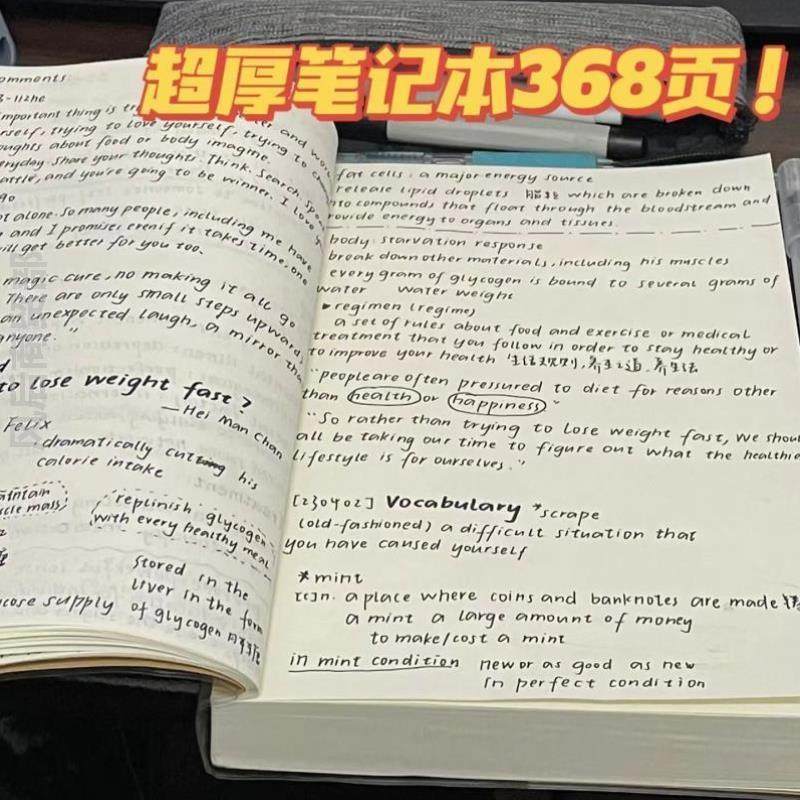 超厚笔记本368页！
omments
3-112he
important thing is
rself, trying to love yourself, trying to
oughts about food or body imagine.
everyday. Share your thoughts. Think. Search. Speak
attle, and you're going to be winner. I love
go
ot alone. So many people, including me have
n and I promise, even if it takes time, one
will get better for you too.
magic cure, no making it all go
There are only small steps upward;
an unexpected laugh, a mirror tha
anyone."
d
to lose weight fast?
—Hei Man Chan
Felix
dramatically cutting his
calorie intake
aintain
scle mass)
replinish glycogen
with every healthy meal
stored in the
liver in the form
of glycogen
ucose supply
fat cells: a major energy source
release lipid droplets which are broken down
into compounds that float through the bloodstream and
rovide energy to organs and tissues.
body: starvation response
break down other materials, including his muscles
every gram of glycogen is bound to several grams of
water water weight
regimen (regime)
a set of rules about food and exercise or medical
treatment that you follow in order to stay healthy or
to improve your health 生活规则,养生之道,养生法
"people are often pressured to diet for reasons other
than health or happiness"
"So rather than trying to lose weight fast, we shou
all be taking our time to figure out what the healthie
lifestyle is for ourselves."
[230402] Vocabulary *scrape
(old-fashioned) a difficult situation that
you have caused yourself
*mint
[c]n. a place where coins and banknotes are made
a mint a large amount of money
to make/cost a mint
in mint condition new or as good as new
in perfect condition